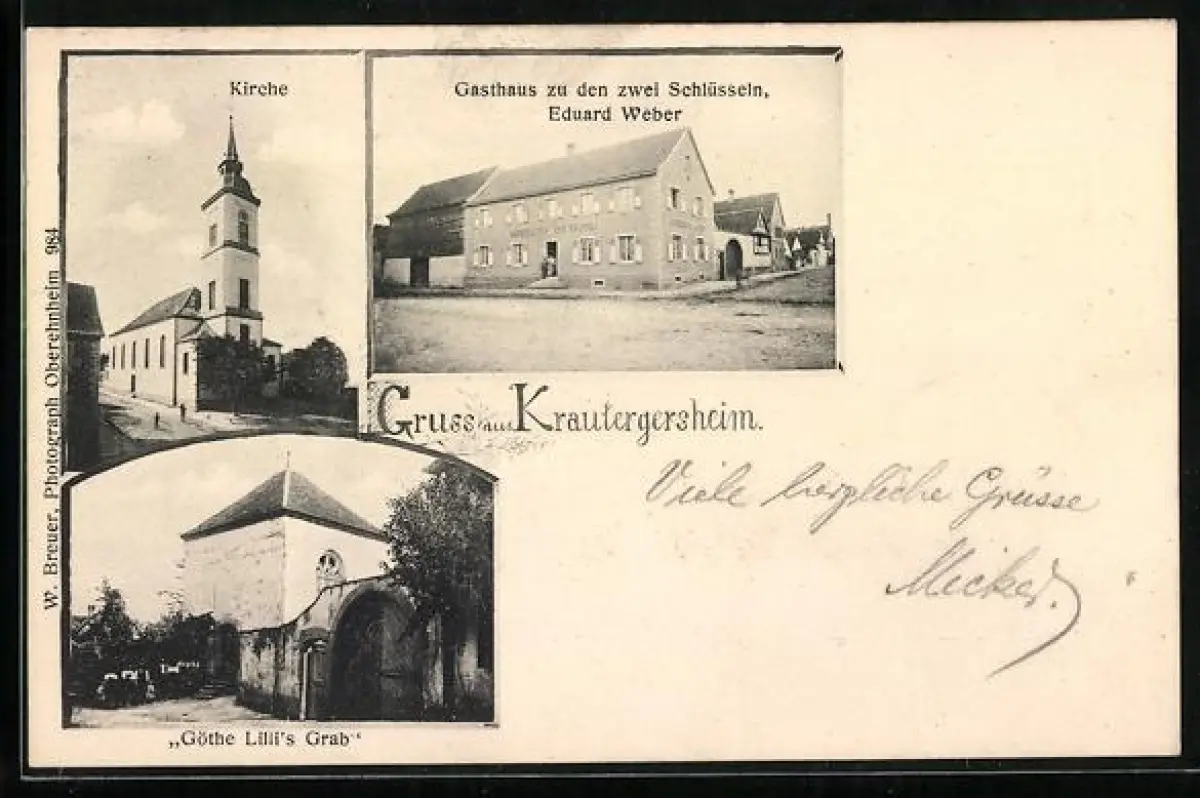 Kirche
Gasthaus zu den zwei Schlüsseln,
Eduard Weber
W. Breuer, Photograph Oberehnheim 984
Gruss aus Krautergersheim.
Viele herzliche Grüsse
„Göthe Lilli's Grab"